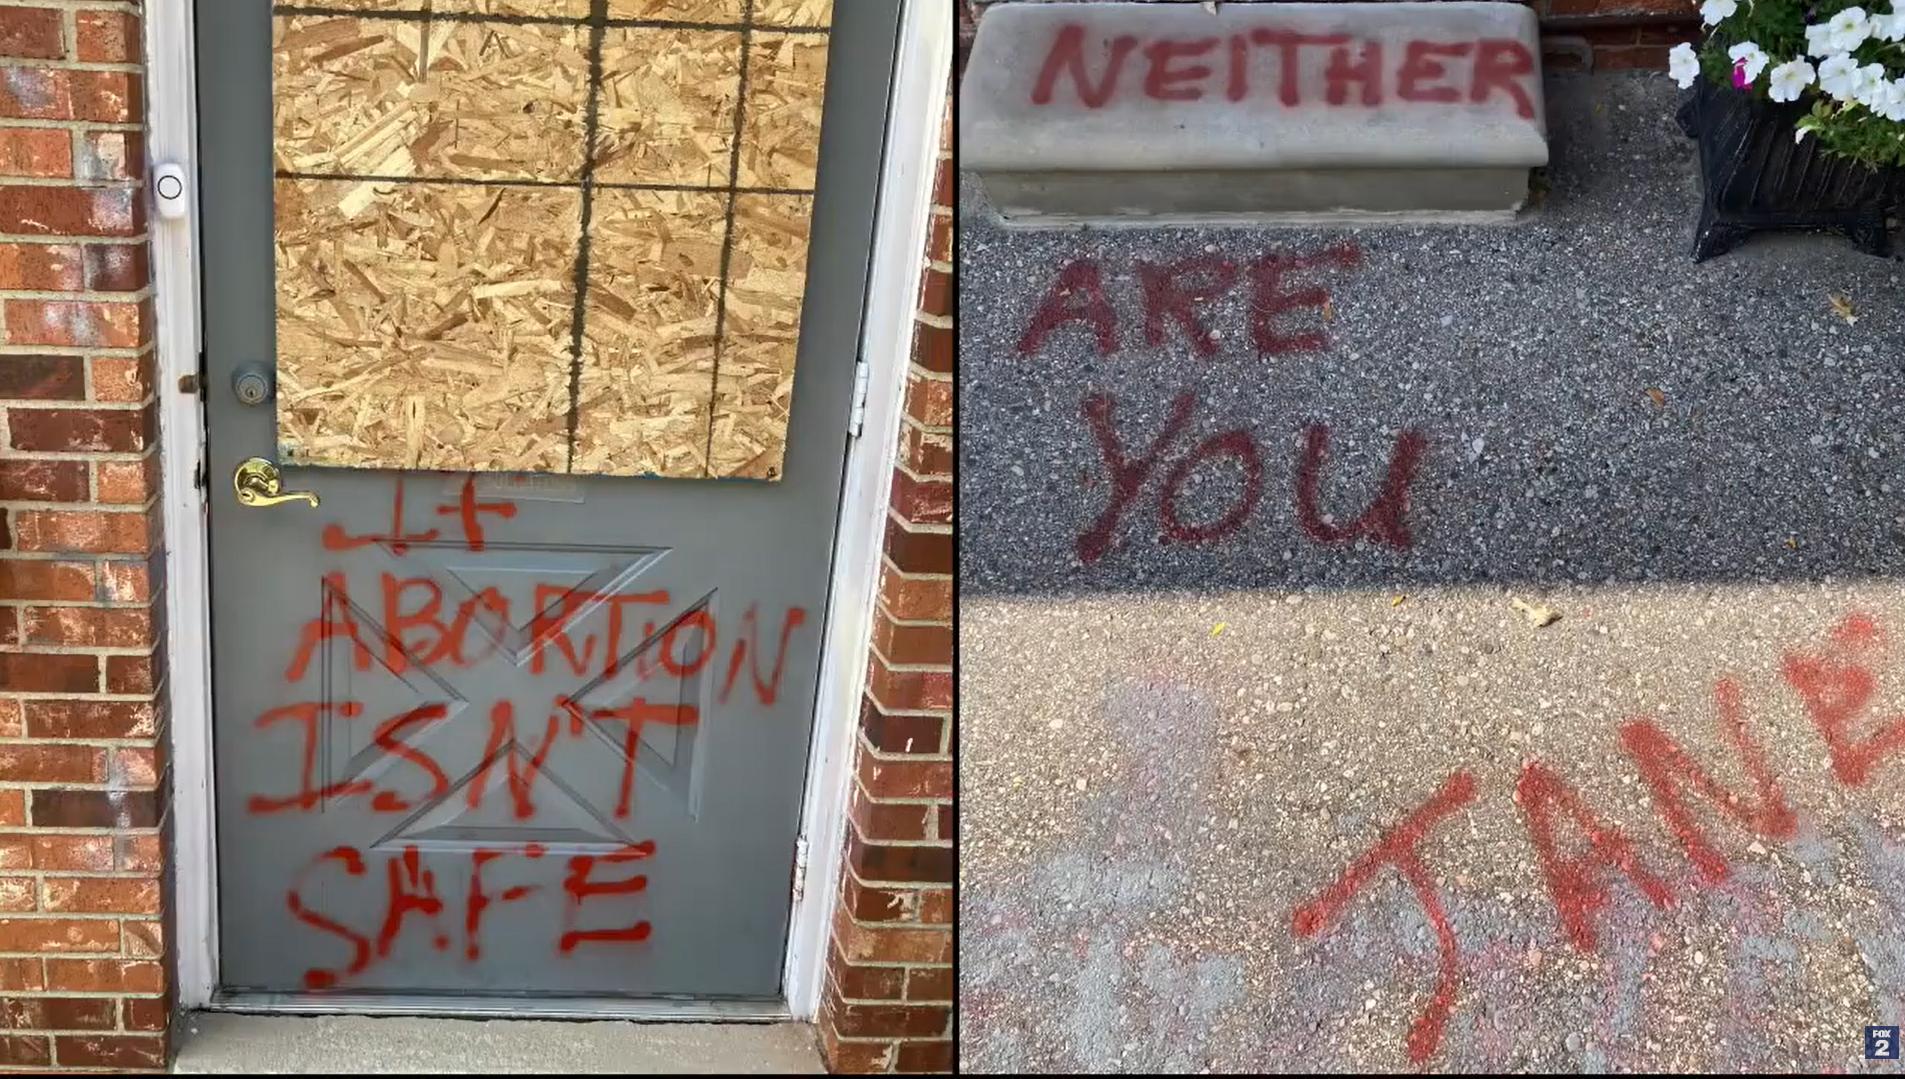 If
ABORTION
ISN'T
SAFE
NEITHER
ARE
YOU
JANE
FOX
2